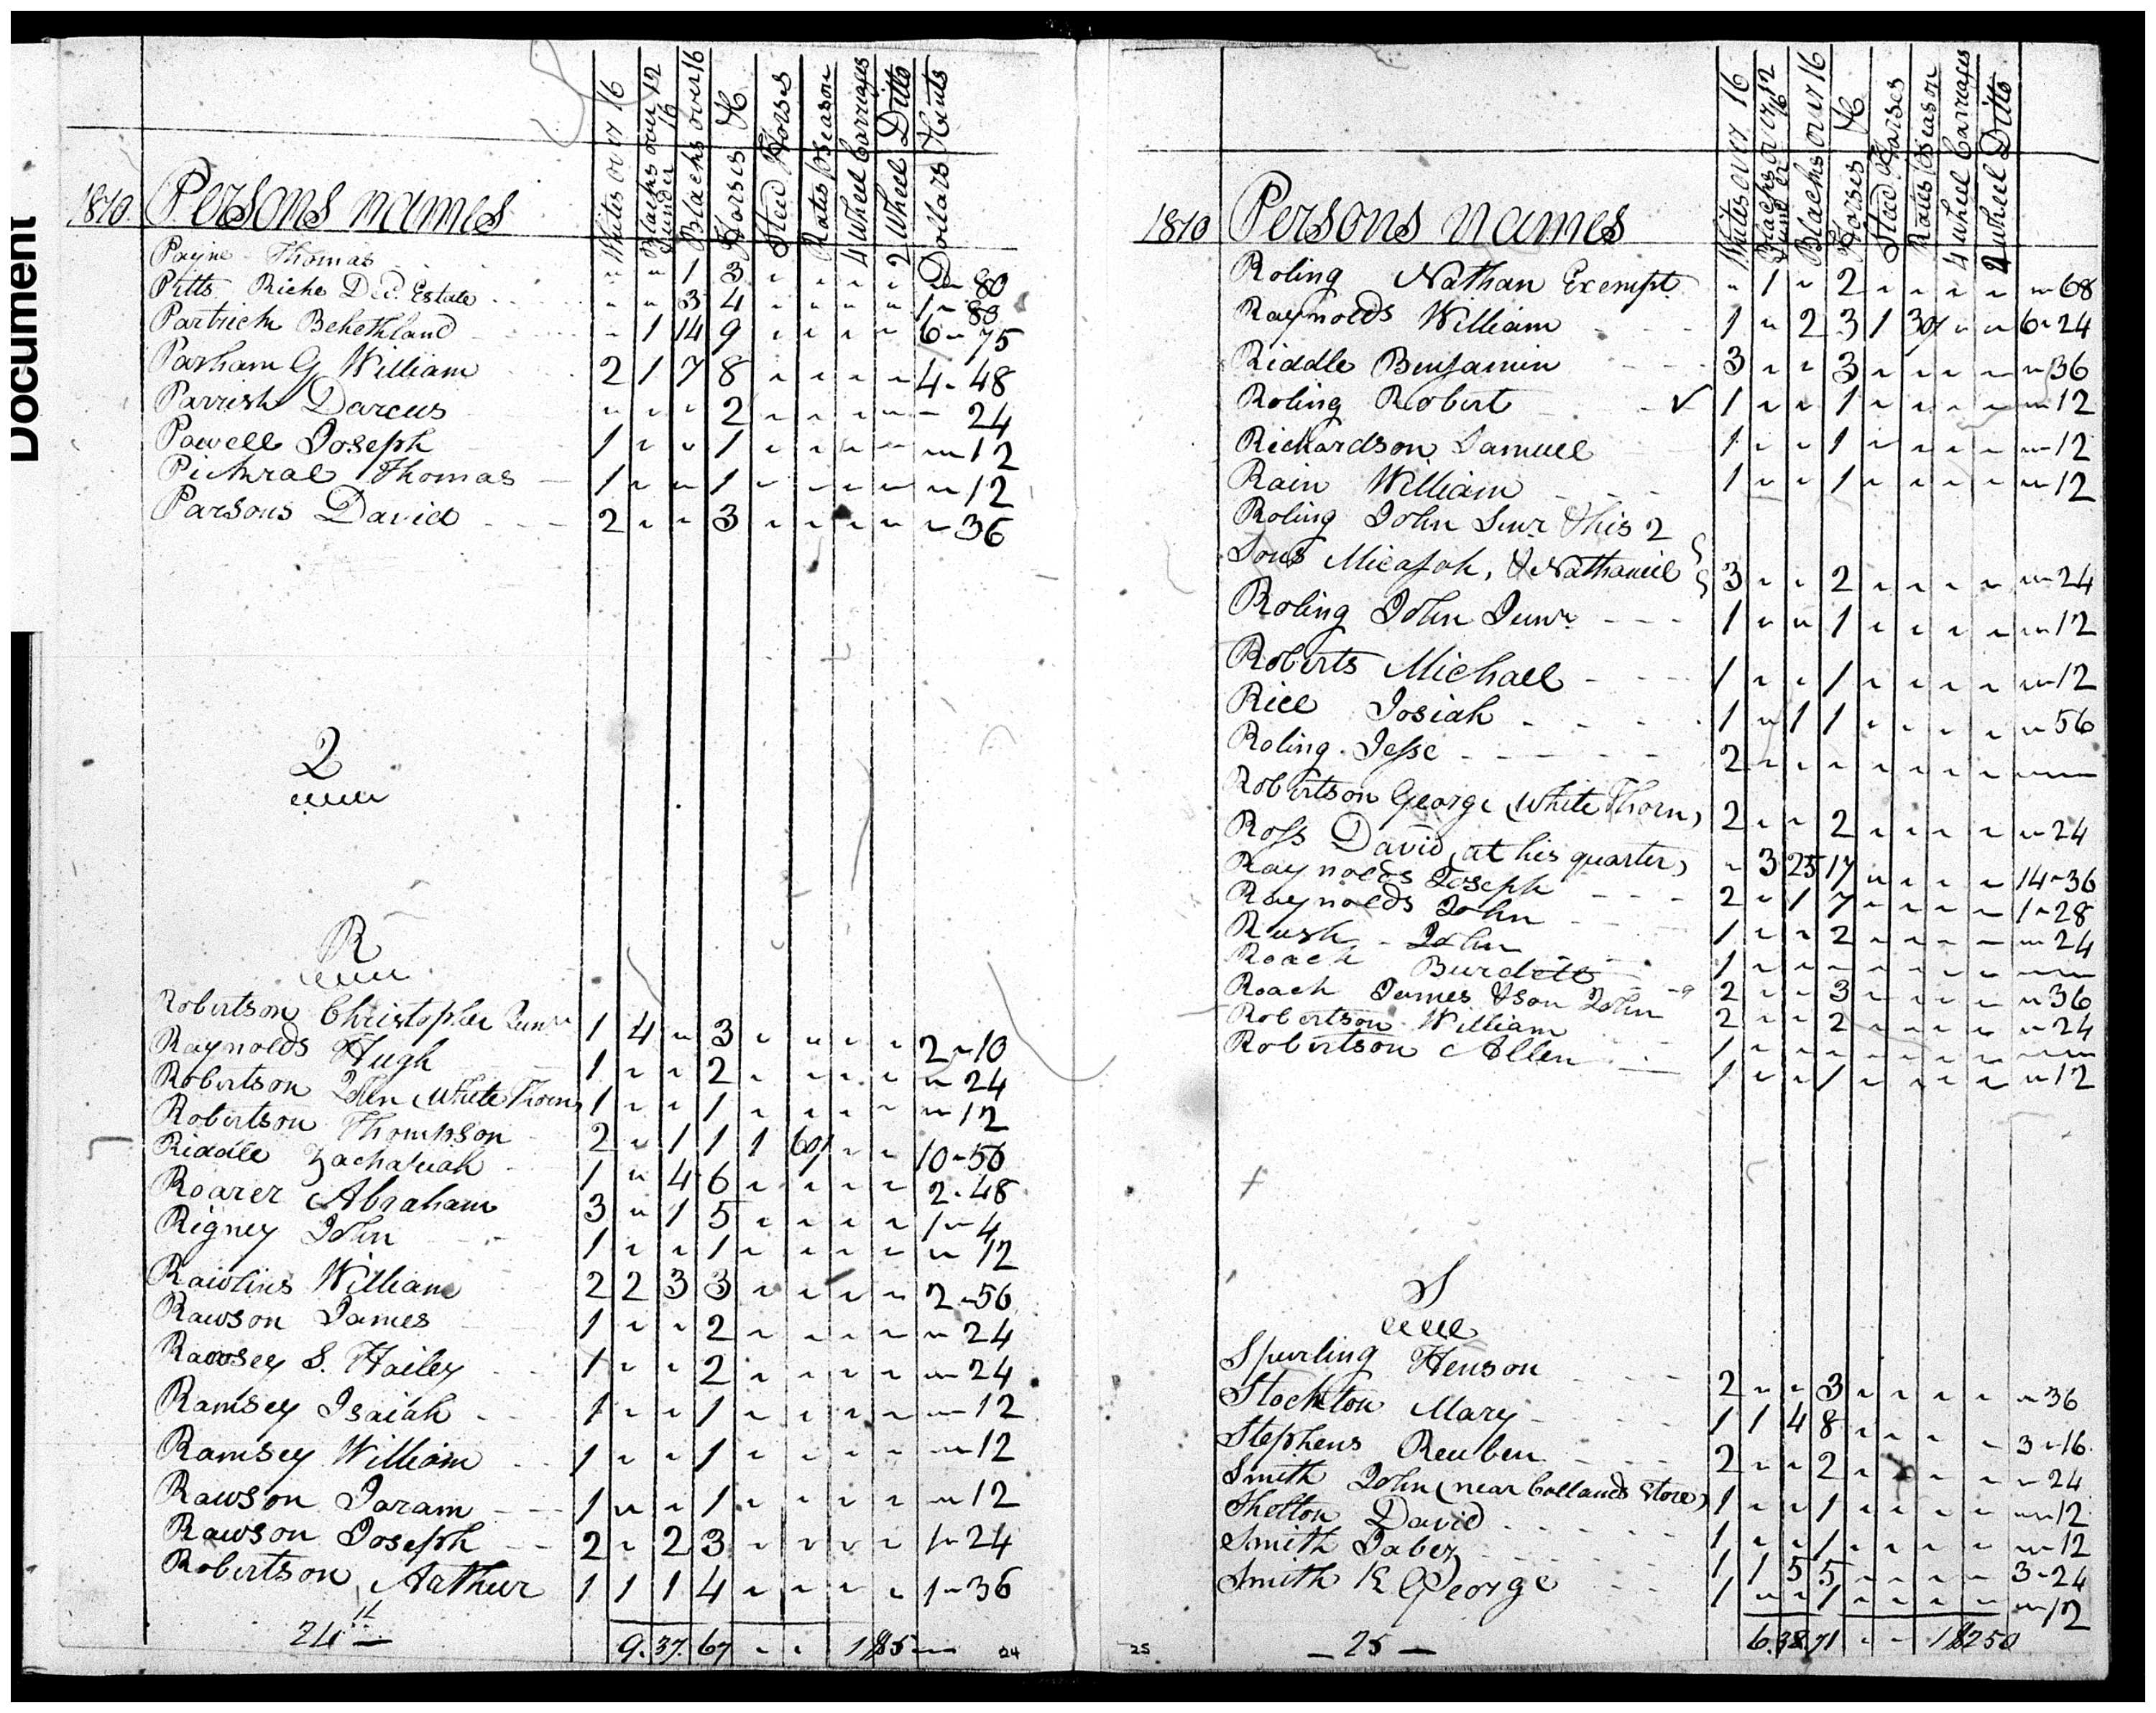 Document
Whites over 16
Blacks over 12 & under 16
Blacks over 16
Horses &c
Stud Horses
Rates Season
4 Wheel Carriages
2 Wheel Ditto
Dollars Cents
1810. Persons names
Payne Thomas " " 1 3 " " " " " 80
Pitts Riche Dec. Estate " " 3 4 " " " " 1 " 80
Partrick Behethland " 1 14 9 " " " " 6 " 75
Parham G William 2 1 7 8 " " " " 4 " 48
Parrish Darcus " " " 2 " " " " " 24
Powell Joseph 1 " " 1 " " " " " 12
Pickral Thomas 1 " " 1 " " " " " 12
Parsons David 2 " " 3 " " " " " 36
Q
R
Robertson Christopher Junr 1 4 " 3 " " " " 2 " 10
Raynolds Hugh 1 " " 2 " " " " " 24
Robertson John (White Thorn) 1 " " 1 " " " " " 12
Robertson Thompson 2 " 1 1 1 60/ " " 10 " 56
Riddle Zachariah 1 " 4 6 " " " " 2 " 48
Roarer Abraham 3 " 1 5 " " " " 1 " 4
Rigney John 1 " " 1 " " " " " 12
Rawlins William 2 2 3 3 " " " " 2 " 56
Rawson James 1 " " 2 " " " " " 24
Ramsey S. Hailey 1 " " 2 " " " " " 24
Ramsey Isaiah 1 " " 1 " " " " " 12
Ramsey William 1 " " 1 " " " " " 12
Rawson Jaram 1 " " 1 " " " " " 12
Rawson Joseph 2 " 2 3 " " " " 1 " 24
Robertson Arthur 1 1 1 4 " " " " 1 " 36
24 9. 37. 67 " " 1 85 24
Whites over 16
Blacks over 12 & under 16
Blacks over 16
Horses &c
Stud Horses
Rates Season
4 Wheel Carriages
2 Wheel Ditto
1810 Persons names
Roling Nathan Exempt " 1 " 2 " " " " " 68
Raynolds William 1 " 2 3 1 30/ " " 6 " 24
Riddle Benjamin 3 " " 3 " " " " " 36
Roling Robert ✓ 1 " " 1 " " " " " 12
Richardson Samuel 1 " " 1 " " " " " 12
Rain William 1 " " 1 " " " " " 12
Roling John Senr. & his 2
Sons Micajah, & Nathaniel 3 " " 2 " " " " " 24
Roling John Junr 1 " " 1 " " " " " 12
Roberts Michael 1 " " 1 " " " " " 12
Rice Josiah 1 " 1 1 " " " " " 56
Roling Jesse 2 " " " " " " " "
Robertson George (White Thorn) 2 " " 2 " " " " " 24
Ross David (at his quarter) " 3 25 17 " " " " 14 " 36
Raynolds Joseph 2 " 1 7 " " " " 1 " 28
Raynolds John 1 " " 2 " " " " " 24
Rush John 1 " " " " " " " "
Roach Burdett 2 " " 3 " " " " " 36
Roach James & son John 2 " " 2 " " " " " 24
Robertson William 1 " " " " " " " "
Robertson Allen 1 " " 1 " " " " " 12
S
Spurling Henson 2 " " 3 " " " " " 36
Stockton Mary 1 1 4 8 " " " " 3 " 16
Stephens Reuben 2 " " 2 " " " " " 24
Smith John (near Callands Store) 1 " " 1 " " " " " 12
Shelton David 1 " " 1 " " " " " 12
Smith Jabez 1 1 5 5 " " " " 3 " 24
Smith K George 1 " " 1 " " " " " 12
25 25 6. 38. 71 " " 1 8250